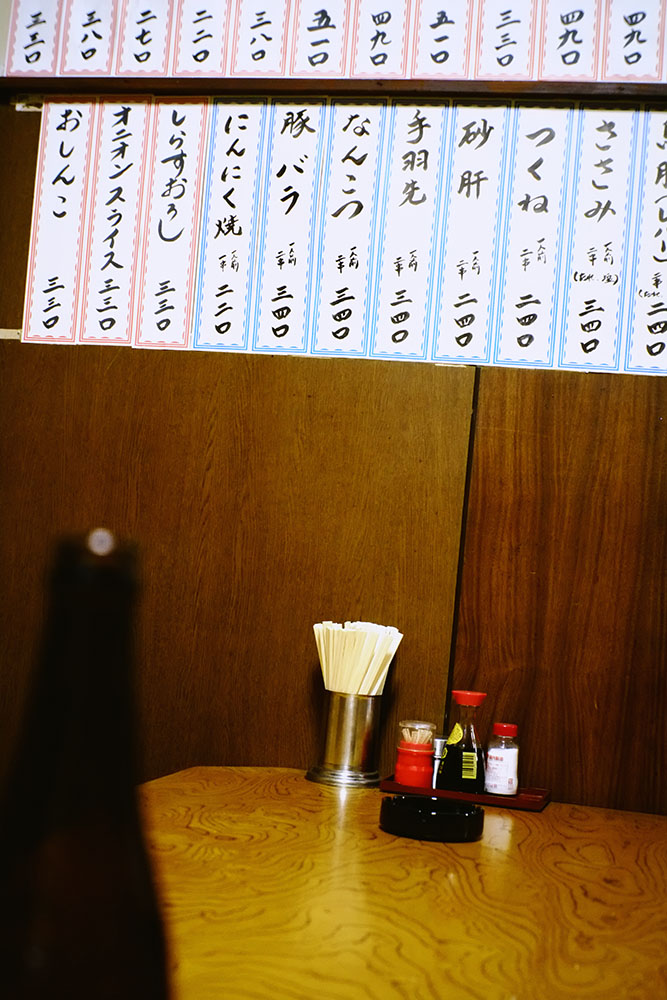 四九〇
四九〇
三三〇
五一〇
四九〇
五一〇
三八〇
二二〇
二七〇
三八〇
三三〇
二四〇
ささみ 一人前 二本 (たれ、塩) 三四〇
つくね 一人前 二本 二四〇
砂肝 一人前 二本 二四〇
手羽先 一人前 二本 三四〇
なんこつ 一人前 二本 三四〇
豚バラ 一人前 二本 三四〇
にんにく焼 一人前 一本 二二〇
しらすおろし 三三〇
オニオンスライス 三三〇
おしんこ 三三〇